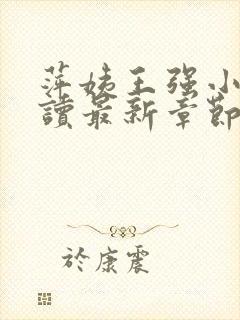 萍姨王强小
讀最新章節
於康震